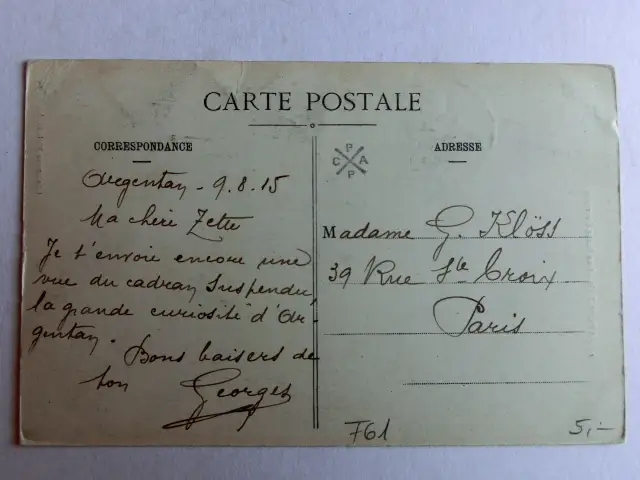 CARTE POSTALE
CORRESPONDANCE
Argentan - 9.8.15
Ma chère Zette
Je t'envoie encore une
vue du cadran suspendu,
la grande curiosité d'Ar-
gentan. Bons baisers de
ton Georges
P
C A
P
ADRESSE
Madame G. Klöss
39 Rue Ste Croix
Paris
F61
5,-